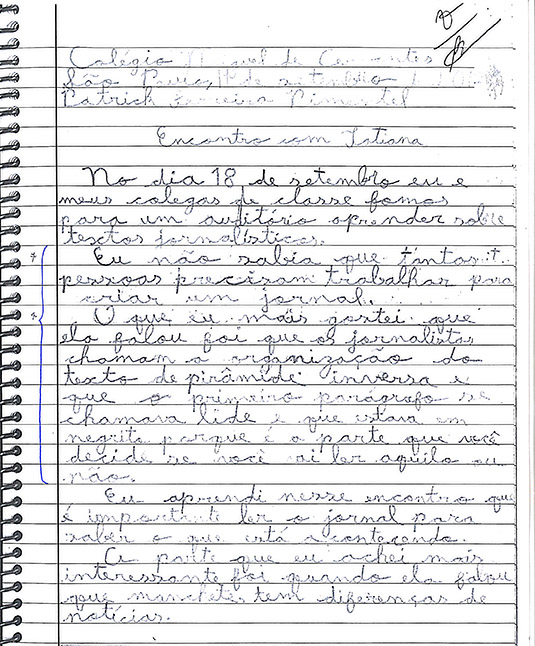 Colégio Miguel de Cervantes
São Paulo, 19 de setembro
Patrick Ferreira Pimentel
Encontro com Tatiana
No dia 18 de setembro eu e
meus colegas de classe fomos
para um auditório aprender sobre
textos jornalísticos.
Eu não sabia que tantas
pessoas precizam trabalhar para
criar um jornal.
O que eu mais gostei que
ela falou foi que os jornalistas
chamam a organização do
texto de pirâmide inversa e
que o primeiro parágrafo se
chamava lide e que estava em
negrito porque é a parte que você
decide se você vai ler aquilo ou
não.
Eu aprendi nesse encontro que
é importante ler o jornal para
saber o que está acontecendo.
A parte que eu achei mais
interessante foi quando ela falou
que manchetes tem diferenças de
notícias.